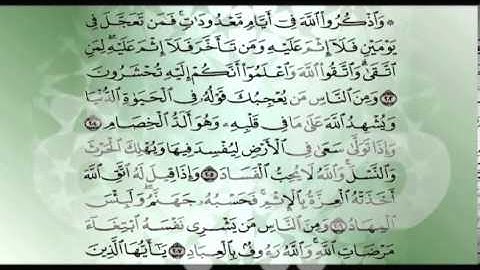 ۞ وَٱذْكُرُوا۟ ٱللَّهَ فِىٓ أَيَّامٍ مَّعْدُودَٰتٍ ۚ فَمَن تَعَجَّلَ فِى
يَوْمَيْنِ فَلَآ إِثْمَ عَلَيْهِ وَمَن تَأَخَّرَ فَلَآ إِثْمَ عَلَيْهِ ۚ لِمَنِ
ٱتَّقَىٰ ۗ وَٱتَّقُوا۟ ٱللَّهَ وَٱعْلَمُوٓا۟ أَنَّكُمْ إِلَيْهِ تُحْشَرُونَ
﴿٢٠٣﴾ وَمِنَ ٱلنَّاسِ مَن يُعْجِبُكَ قَوْلُهُۥ فِى ٱلْحَيَوٰةِ ٱلدُّنْيَا
وَيُشْهِدُ ٱللَّهَ عَلَىٰ مَا فِى قَلْبِهِۦ وَهُوَ أَلَدُّ ٱلْخِصَامِ ﴿٢٠٤﴾
وَإِذَا تَوَلَّىٰ سَعَىٰ فِى ٱلْأَرْضِ لِيُفْسِدَ فِيهَا وَيُهْلِكَ ٱلْحَرْثَ
وَٱلنَّسْلَ ۗ وَٱللَّهُ لَا يُحِبُّ ٱلْفَسَادَ ﴿٢٠٥﴾ وَإِذَا قِيلَ لَهُ ٱتَّقِ ٱللَّهَ
أَخَذَتْهُ ٱلْعِزَّةُ بِٱلْإِثْمِ ۚ فَحَسْبُهُۥ جَهَنَّمُ ۚ وَلَبِئْسَ
ٱلْمِهَادُ ﴿٢٠٦﴾ وَمِنَ ٱلنَّاسِ مَن يَشْرِى نَفْسَهُ ٱبْتِغَآءَ
مَرْضَاتِ ٱللَّهِ ۗ وَٱللَّهُ رَءُوفٌۢ بِٱلْعِبَادِ ﴿٢٠٧﴾ يَٰٓأَيُّهَا ٱلَّذِينَ